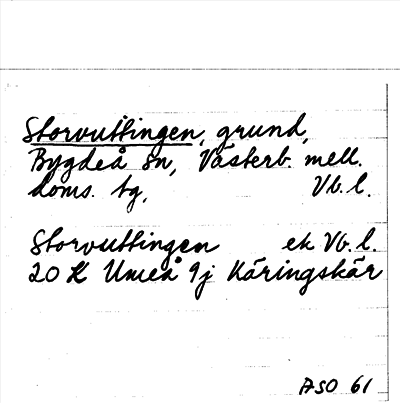 Storvuttingen, grund,
Bygdeå sn, Västerb. mell.
doms. tg, Vb. l.
Storvuttingen ek Vb. l.
20 K Umeå 9j Käringskär
ASO 61